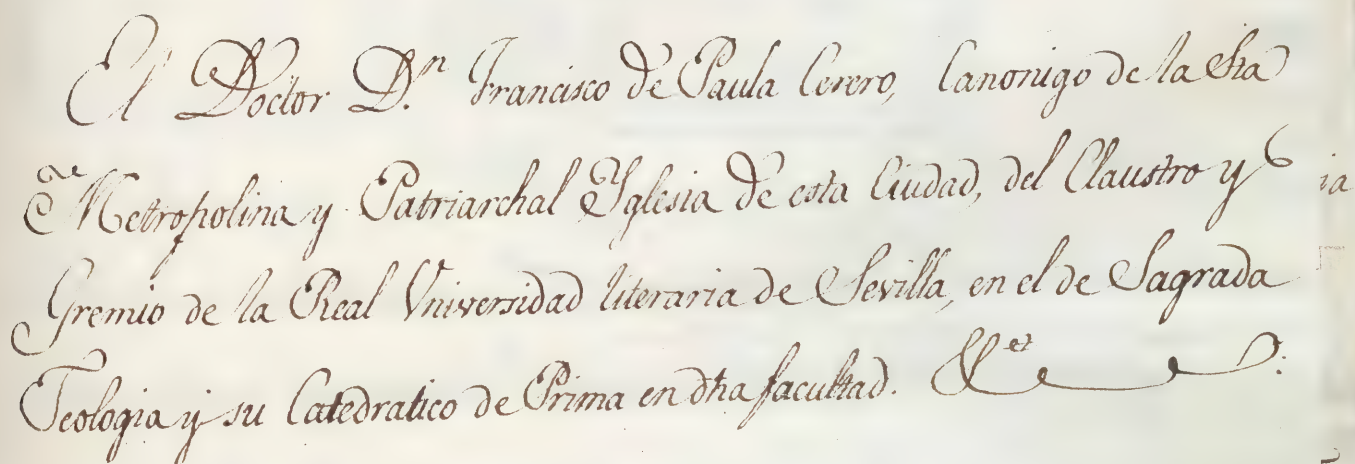 El Doctor D.n Francisco de Paula Cerero, Canonigo de la Sta
Metropolina y Patriarchal Yglesia de esta Ciudad, del Claustro y
Gremio de la Real Vniversidad literaria de Sevilla, en el de Sagrada
Teologia y su Catedratico de Prima en dha facultad. &.et
ia